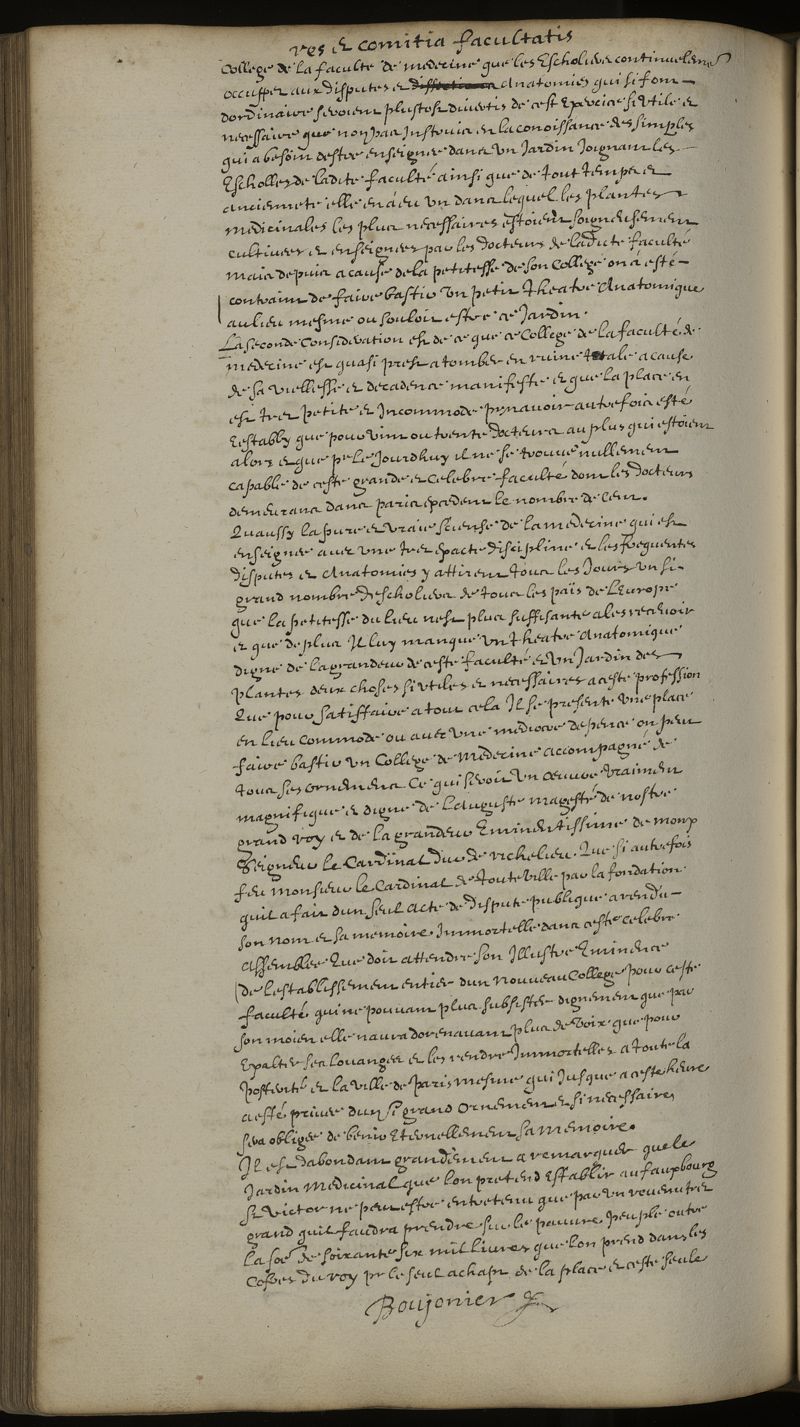 res et comitia facultatis
College de la faculte de medecine que les Escholiers continuelemt
occupper aux disputes et dissections Anatomies qui si font
dordinaire seroient plustost divertis de cest Exercice si utile et
necessaire que non pas Instruicts en la conoissance des simples
qui a besoin destre enseignee dans un Jardin Joignant les
Escholles de ladite faculté ainsi que de tout temps et
ancienneté elle en à eu un dans lequel les plantes
medicinales les plus necessaires estoient soigneusement
cultivees et enseignees par les docteurs de ladite faculté
mais depuis a cause de la petitesse de son College on à esté
contraint de faire bastir un petit Theatre Anatomique
au lieu mesme ou souloit estre ce Jardin.
La seconde Consideration est de ce que ce College de la faculté de
medecine est quasi prest a tomber en ruine totale a cause
de sa viellesse et decadence manifeste et que la place en
est tres petite et Incommode pour navoir autrefois esté
establÿ que pour vint ou trente docteurs au plus qui estoient
alors et que pr le Jourdhuy il ne se trouve nullement
capable de ceste grande et Celebre faculté dont les docteurs
demeurans dans paris excedent le nombre de Cent.
Quaussy la pure et vraie sciense de la medecine qui est
enseignee avec une tres exacte discipline et les frequentes
disputes et Anatomies y attirent tous les Jours un si
grand nombre descholiers de tous les païs de l'Europe
que la petitesse du lieu nest plus suffisante a les recevoir
et que de plus Il luy manque un Theatre Anatomique
digne de la grandeur de ceste faculté et un Jardin des
plantes deux choses si utiles et necessaires a ceste profession
Que pour satisfaire a tout cela Il se presente une place
en lieu commode ou avec une mediocre depence on peut
faire bastir un College de Medecine accompagné de
tous ses ornemens Ce qui seroit un oeuvre vraiment
magnifique et digne de L'auguste magesté de nostre
grand roy et de la grandeur Eminentissime de monp
Seigneur le Cardinal duc de richelieu. Que si autrefois
feu Monsieur le Cardinal de touteville par la fondation
quil a fait dun seul acte de dispute publique a rendu
son nom et sa memoire Immortelle dans ceste celebre
assemblee Que doit attendre son Illustre Eminence
de lestablissement entier dun nouveau College pour ceste
faculté qui ne pouvant plus subsister dignement que par
son moien elle naura dorenavant plus de voix que pour
Exalter ses louanges et les rendre Immortelles a toute la
posterité et la ville de Paris mesme qui Jusque a ceste heure
a esté privee dun si grand ornement et si necessaire
sera obligee de benir Eternellement sa memoire.
Il est dabondant grandement a remarquer que le
Jardin Medicinal que lon pretend Establir au fauxbourg
St Victor ne peut estre entretenu que par un revenu tres
grand quil faudra prendre sur le pauvre peuple outre
la soe de soixante six mil livres que lon prend dans les
Cofres du roy pr le seul achapt de la place et ceste seule
Boujonier